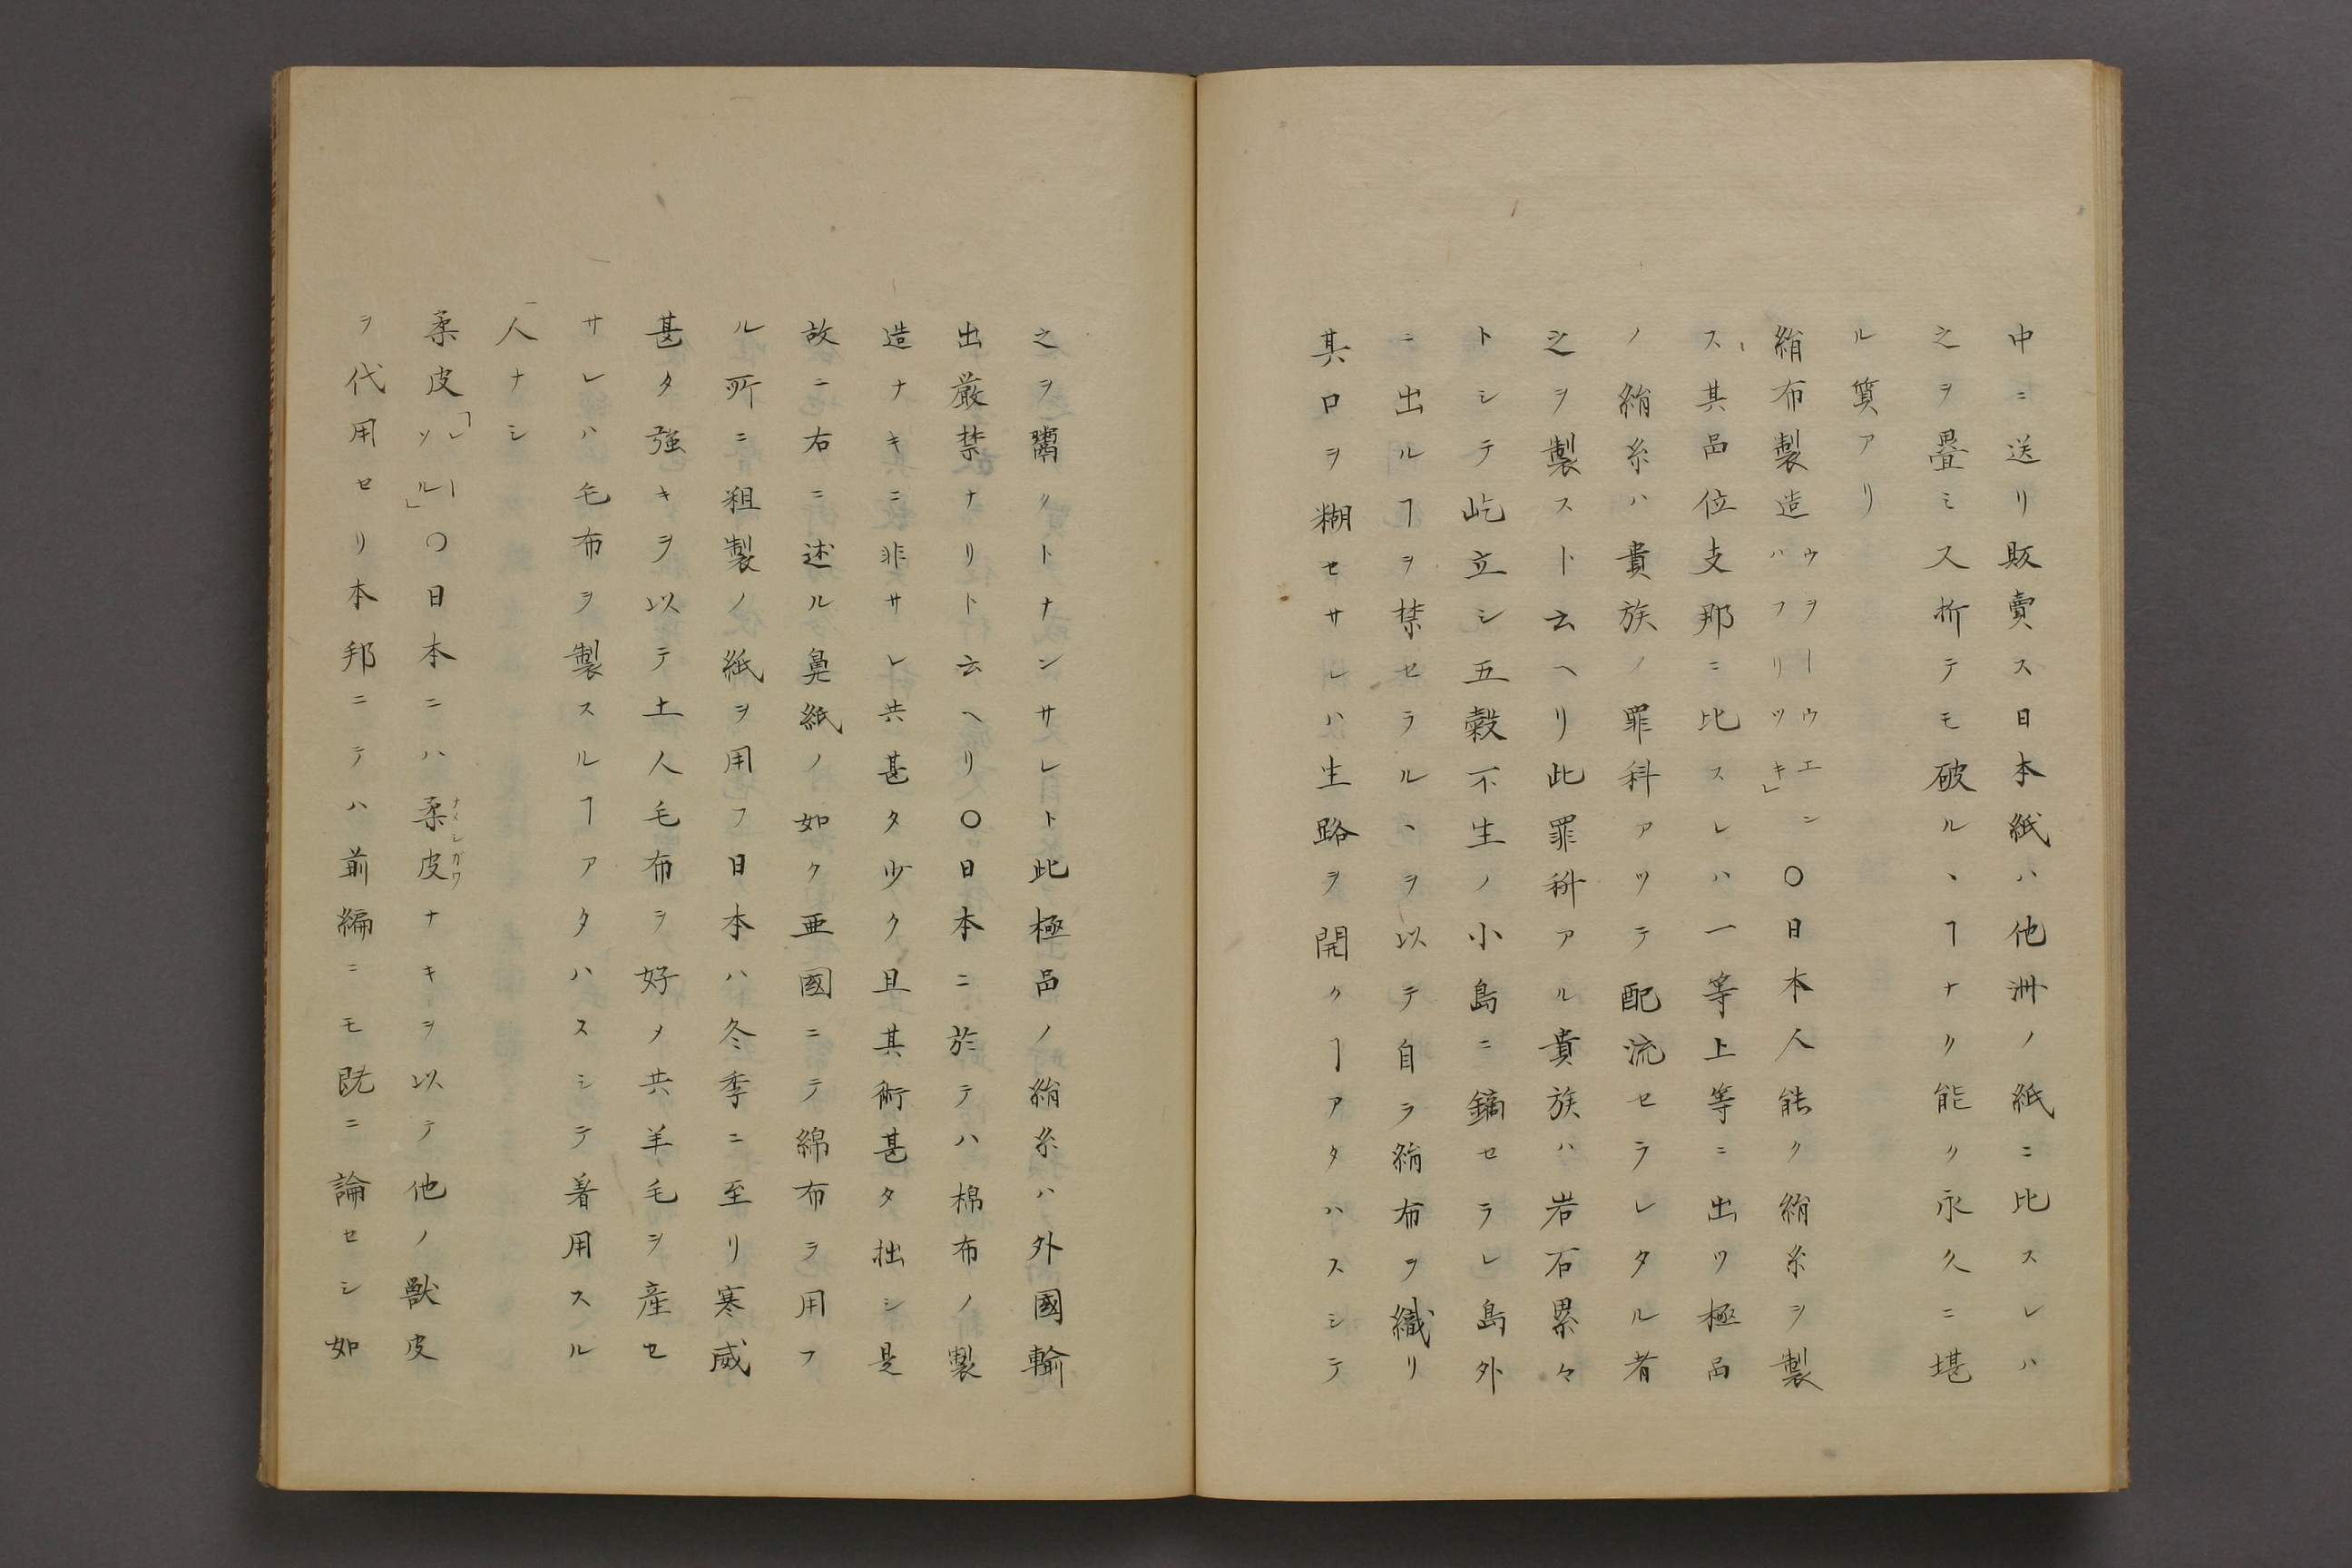 中ニ送リ販賣ス日本紙ハ他洲ノ紙ニ比スレハ
之ヲ疊ミ又折テモ破ル、ヿナク能ク永久ニ堪
ル質アリ
絹布製造ウヲーウエンハフリツキ」〇日本人能ク絹糸ヲ製
ス其品位支那ニ比スレハ一等上等ニ出ツ極品
ノ絹糸ハ貴族ノ罪科アツテ配流セラレタル者
之ヲ製スト云ヘリ此罪科アル貴族ハ岩石累々
トシテ屹立シ五穀不生ノ小島ニ鏑セラレ島外
ニ出ルヿヲ禁セラル、ヲ以テ自ラ絹布ヲ織リ
其口ヲ糊セサレハ生路ヲ開クヿアタハスシテ
之ヲ鬻クトナンサレト此極品ノ絹糸ハ外國輸
出厳禁ナリト云ヘリ〇日本ニ於テハ棉布ノ製
造ナキニ非サレ共甚タ少ク且其術甚タ拙シ是
故ニ右ニ述ル鼻紙ノ如ク亜國ニテ綿布ヲ用フ
ル所ニ粗製ノ紙ヲ用フ日本ハ冬季ニ至リ寒威
甚タ強キヲ以テ土人毛布ヲ好メ共羊毛ヲ産セ
サレハ毛布ヲ製スルヿアタハスシテ着用スル
人ナシ
柔皮「レーソル」〇日本ニハ柔皮ナメシガワナキヲ以テ他ノ獣皮
ヲ代用セリ本邦ニテハ前編ニモ既ニ論セシ如